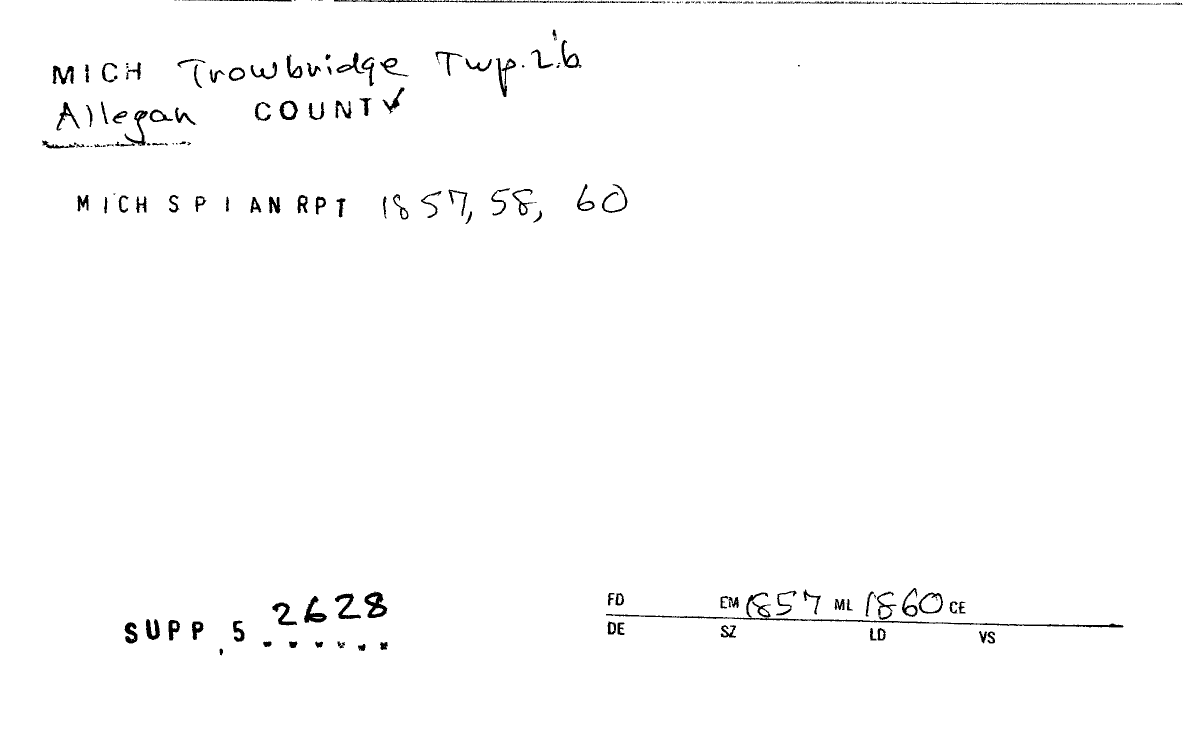 MICH Trowbridge Twp. 2.6
Allegan COUNTY
MICH S P I AN RPT 1857, 58, 60
SUPP. 5 2628
FD EM 1857 ML 1860 CE
DE SZ LD VS